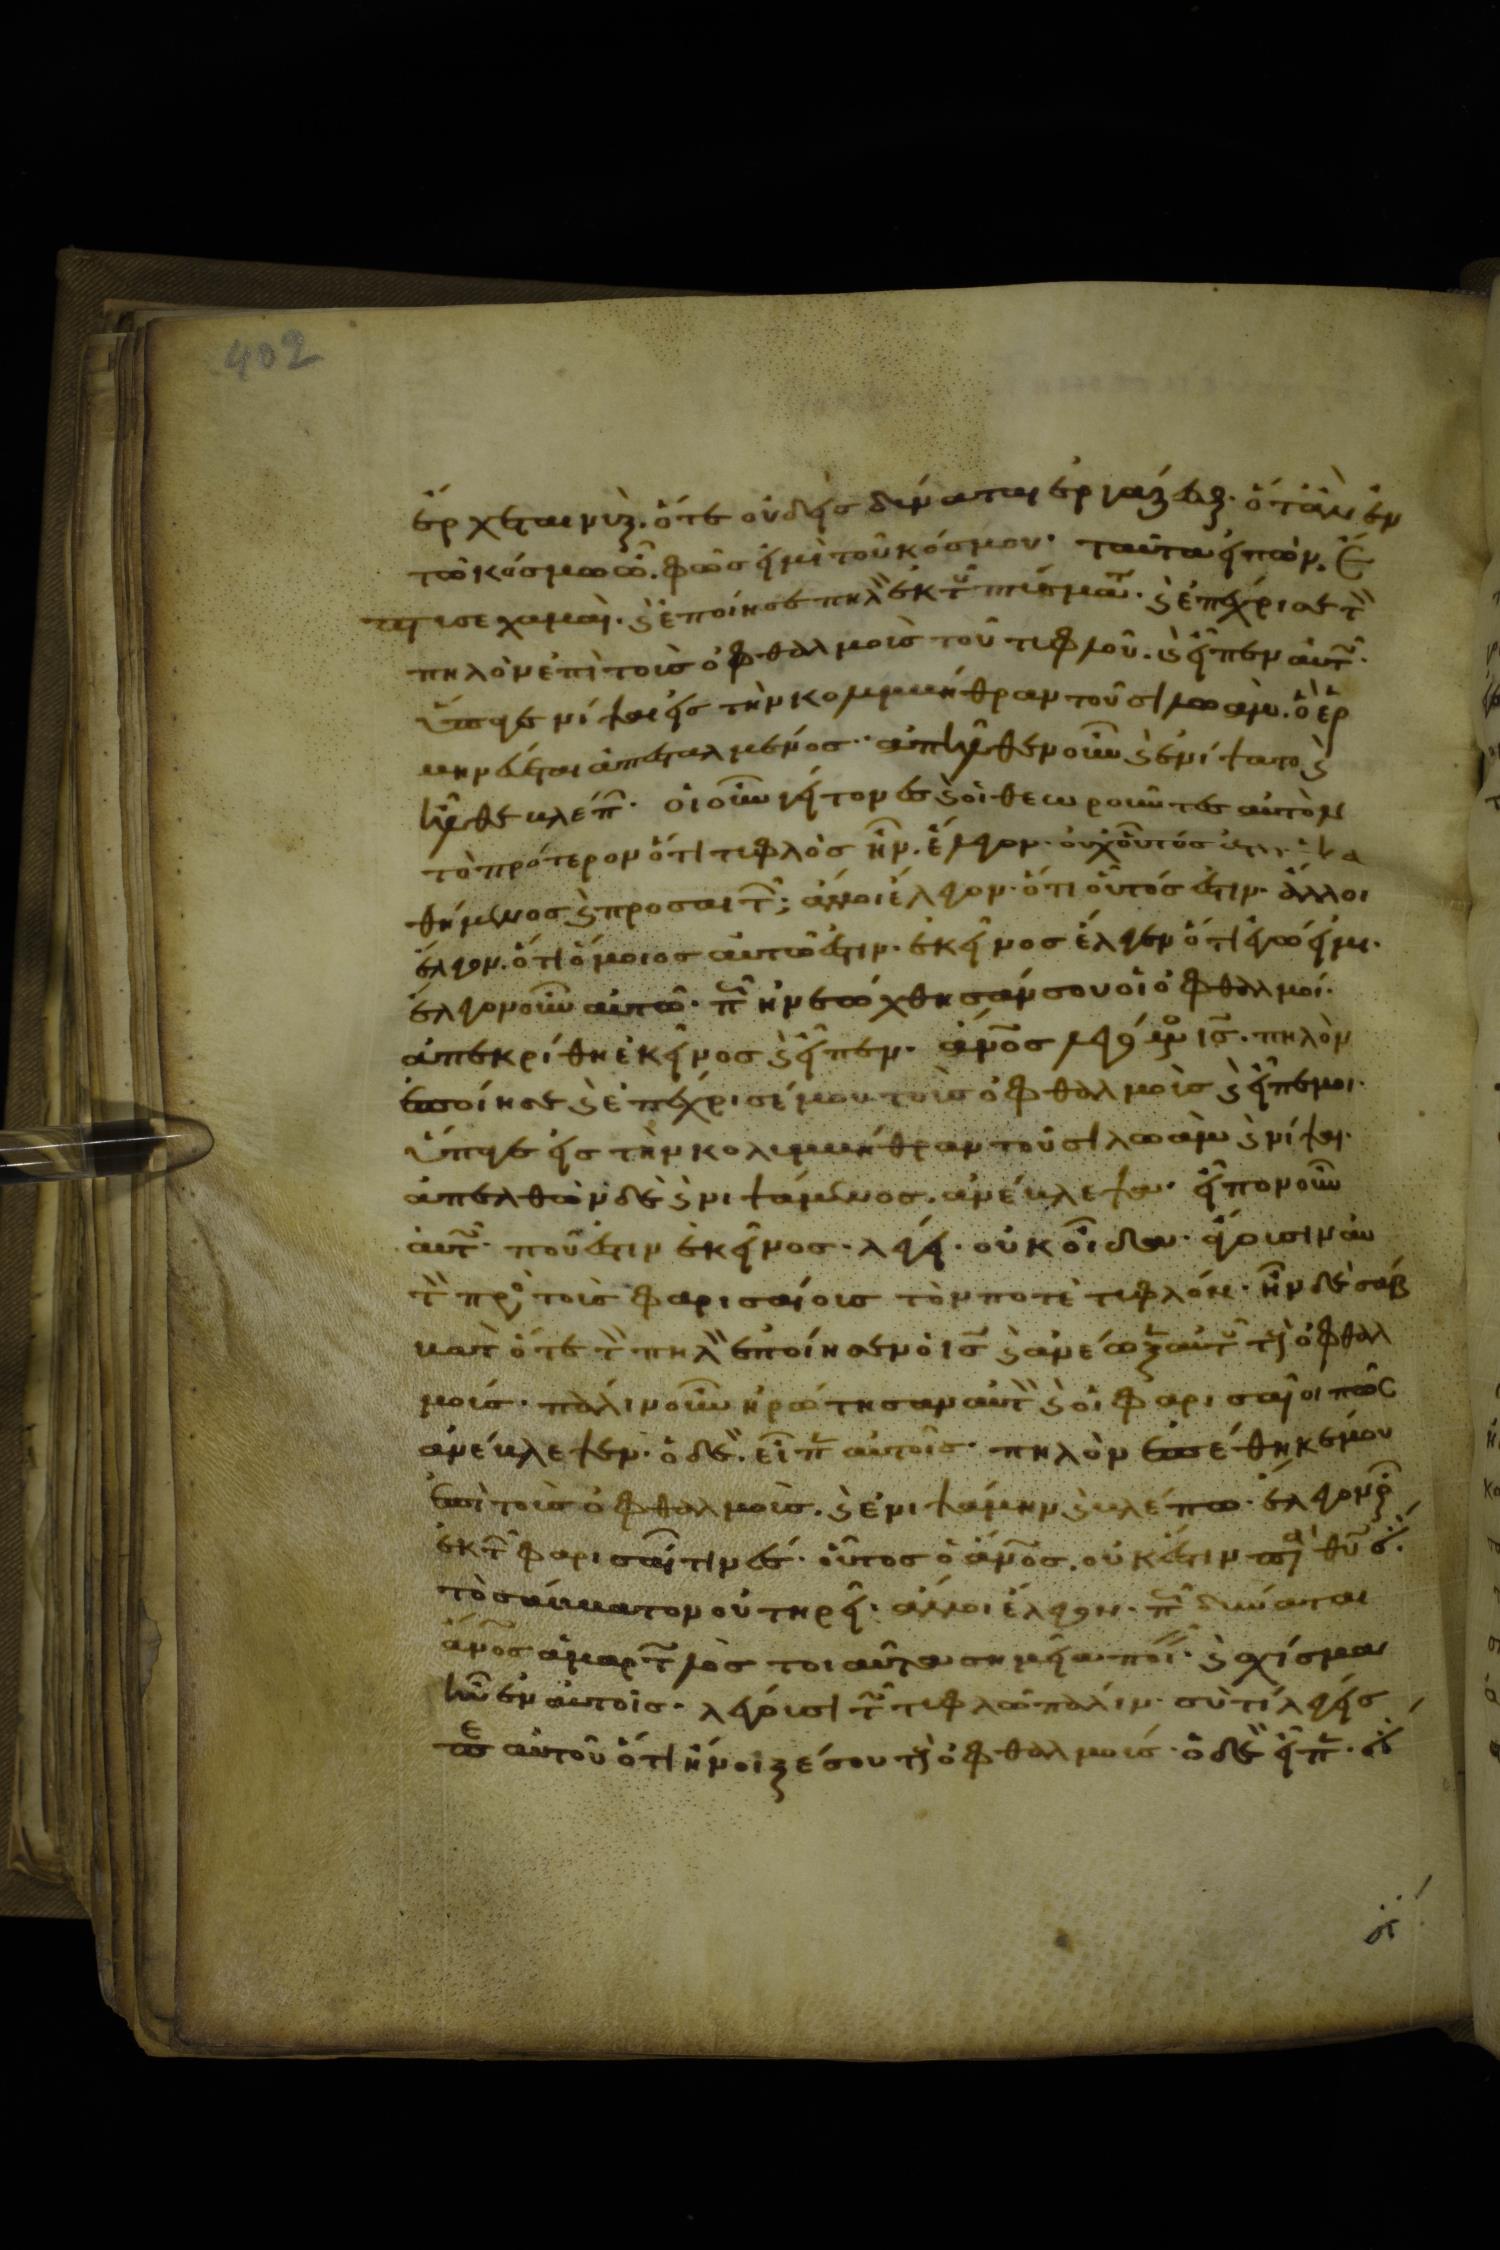 402
ἔρχεται νὺξ. ὅτε οὐδεὶς δύναται ἐργάζεσθ. ὅταν ἐν
τῶ κόσμω ὦ. φῶς εἰμὶ τοῦ κόσμου. ταῦτα εἰπὼν. ἔ
πτυσε χαμαὶ. ϗ ἐποίησε πηλ ἐκ τ πτύσματ. ϗ ἐπέχρισε τ
πηλὸν ἐπὶ τοὺς ὀφθαλμοὺς τοῦ τυφλοῦ. ϗ εἶπεν αὐτ.
ὕπαγε νίψαι εἰς τὴν κολυμβήθραν τοῦ σιλωάμ. ὃ ἑρ
μηνεύεται ἀπεσταλμένος. ἀπῆλθεν οὖν ϗ ἐνίψατο ϗ
ἦλθε βλέπ. οἱ οὖν γείτονες ϗ οἱ θεωροῦντες αὐτὸν
τὸ πρότερον ὅτι τυφλὸς ἦν. ἔλεγον. οὐχ οὗτός ἐστιν ὁ κα
θήμενος ϗ προσαιτ; ἄλλοι ἔλεγον. ὅτι οὗτός ἐστιν. ἄλλοι
ἔλεγον. ὅτι ὅμοιος αὐτῶ ἐστιν. ἐκεῖνος ἔλεγεν ὅτι ἐγώ εἰμι.
ἔλεγον οὖν αὐτῶ. π ἠνεώχθησάν σου οἱ ὀφθαλμοί.
ἀπεκρίθη ἐκεῖνος ϗ εἶπεν. ἄνος λεγόμ ις. πηλὸν
ἐποίησε ϗ ἐπέχρισέ μου τοὺς ὀφθαλμοὺς ϗ εἶπέ μοι.
ὕπαγε εἰς τὴν κολυμβήθραν τοῦ σιλωὰμ ϗ νίψαι.
ἀπελθὼν δὲ ϗ νιψάμενος. ἀνέβλεψα. εἶπον οὖν
αὐτ. ποῦ ἐστιν ἐκεῖνος. λέγει. οὐκ οἶδα. ἄγουσιν αὐ
τ πρ τοὺς φαρισαίους τόν ποτε τυφλόν. ἦν δὲ σάβ
βατ ὅτε τ πηλ ἐποίησεν ὁ ις ϗ ἀνέωξ αὐτ τ ὀφθαλ
μούς. πάλιν οὖν ἠρώτησαν αὐτ ϗ οἱ φαρισαῖοι πῶς
ἀνέβλεψεν. ὁ δὲ. εἶπ αὐτοῖς. πηλὸν ἐπέθηκέ μου
ἐπὶ τοὺς ὀφθαλμοὺς. ϗ ἐνιψάμην ϗ βλέπω. ἔλεγον
ἐκ τ φαρισαί τινές. οὗτος ὁ ἄνος. οὐκ ἔστιν παρὰ θυ ὅτι
τὸ σάββατον οὐ τηρεῖ. ἄλλοι ἔλεγον. π δύναται
ἄνος ἁμαρτλὸς τοιαῦτα σημεῖα ποι. ϗ σχίσμα
ἦν ἐν αὐτοῖς. λέγουσι τ τυφλῶ πάλιν. σὺ τί λέγεις
πε αὐτοῦ ὅτι ἤνοιξέ σου τ ὀφθαλμούς. ὁ δὲ εἶπ. ὅτι